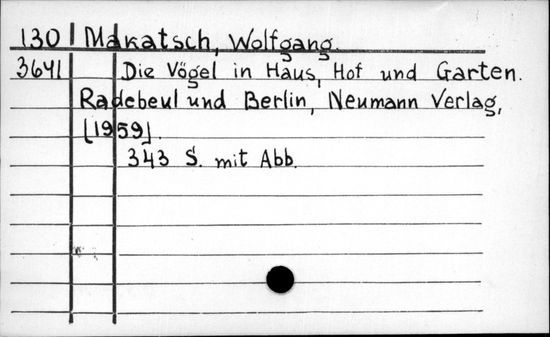 130 Makatsch, Wolfgang.
3641 Die Vögel in Haus, Hof und Garten.
Radebeul und Berlin, Neumann Verlag,
[1959].
343 S. mit Abb.